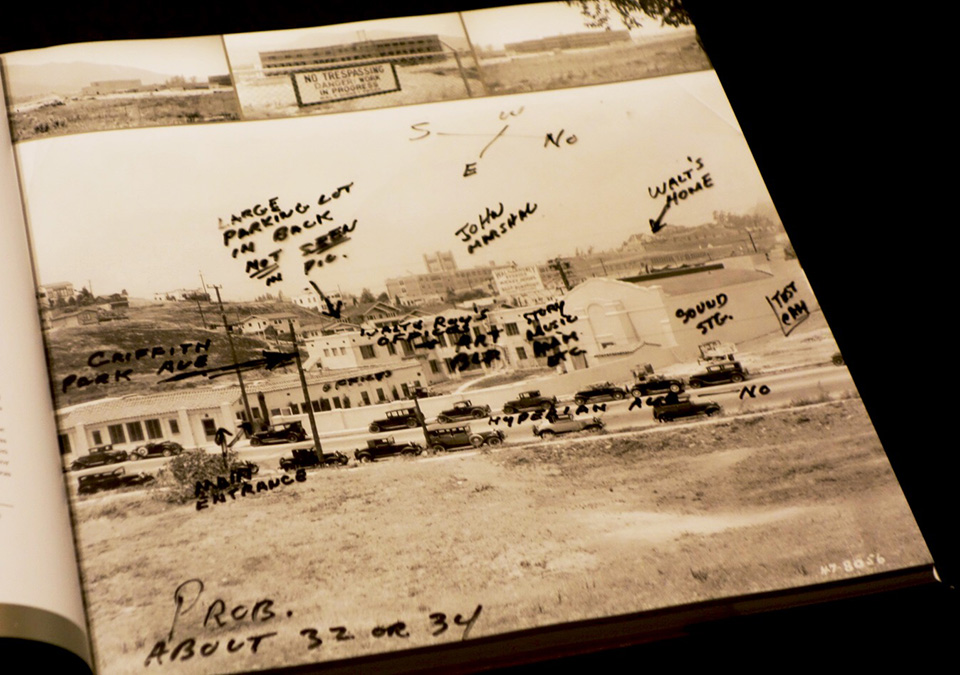 NO TRESPASSING
DANGER WORK
IN PROGRESS
S W
E No
WALT'S
HOME
LARGE
PARKING LOT
IN BACK
NOT SEEN
IN PIC.
JOHN
MARSHAL
GRIFFITH
PARK AVE
WALT & ROY'S
OFFICES
ART
DEP
STORY
MUSIC
ETC.
SOUND
STG.
OFFICES
HYPERIAN AVE NO
MAIN
ENTRANCE
PROB.
ABOUT 32 OR 34
47-8056